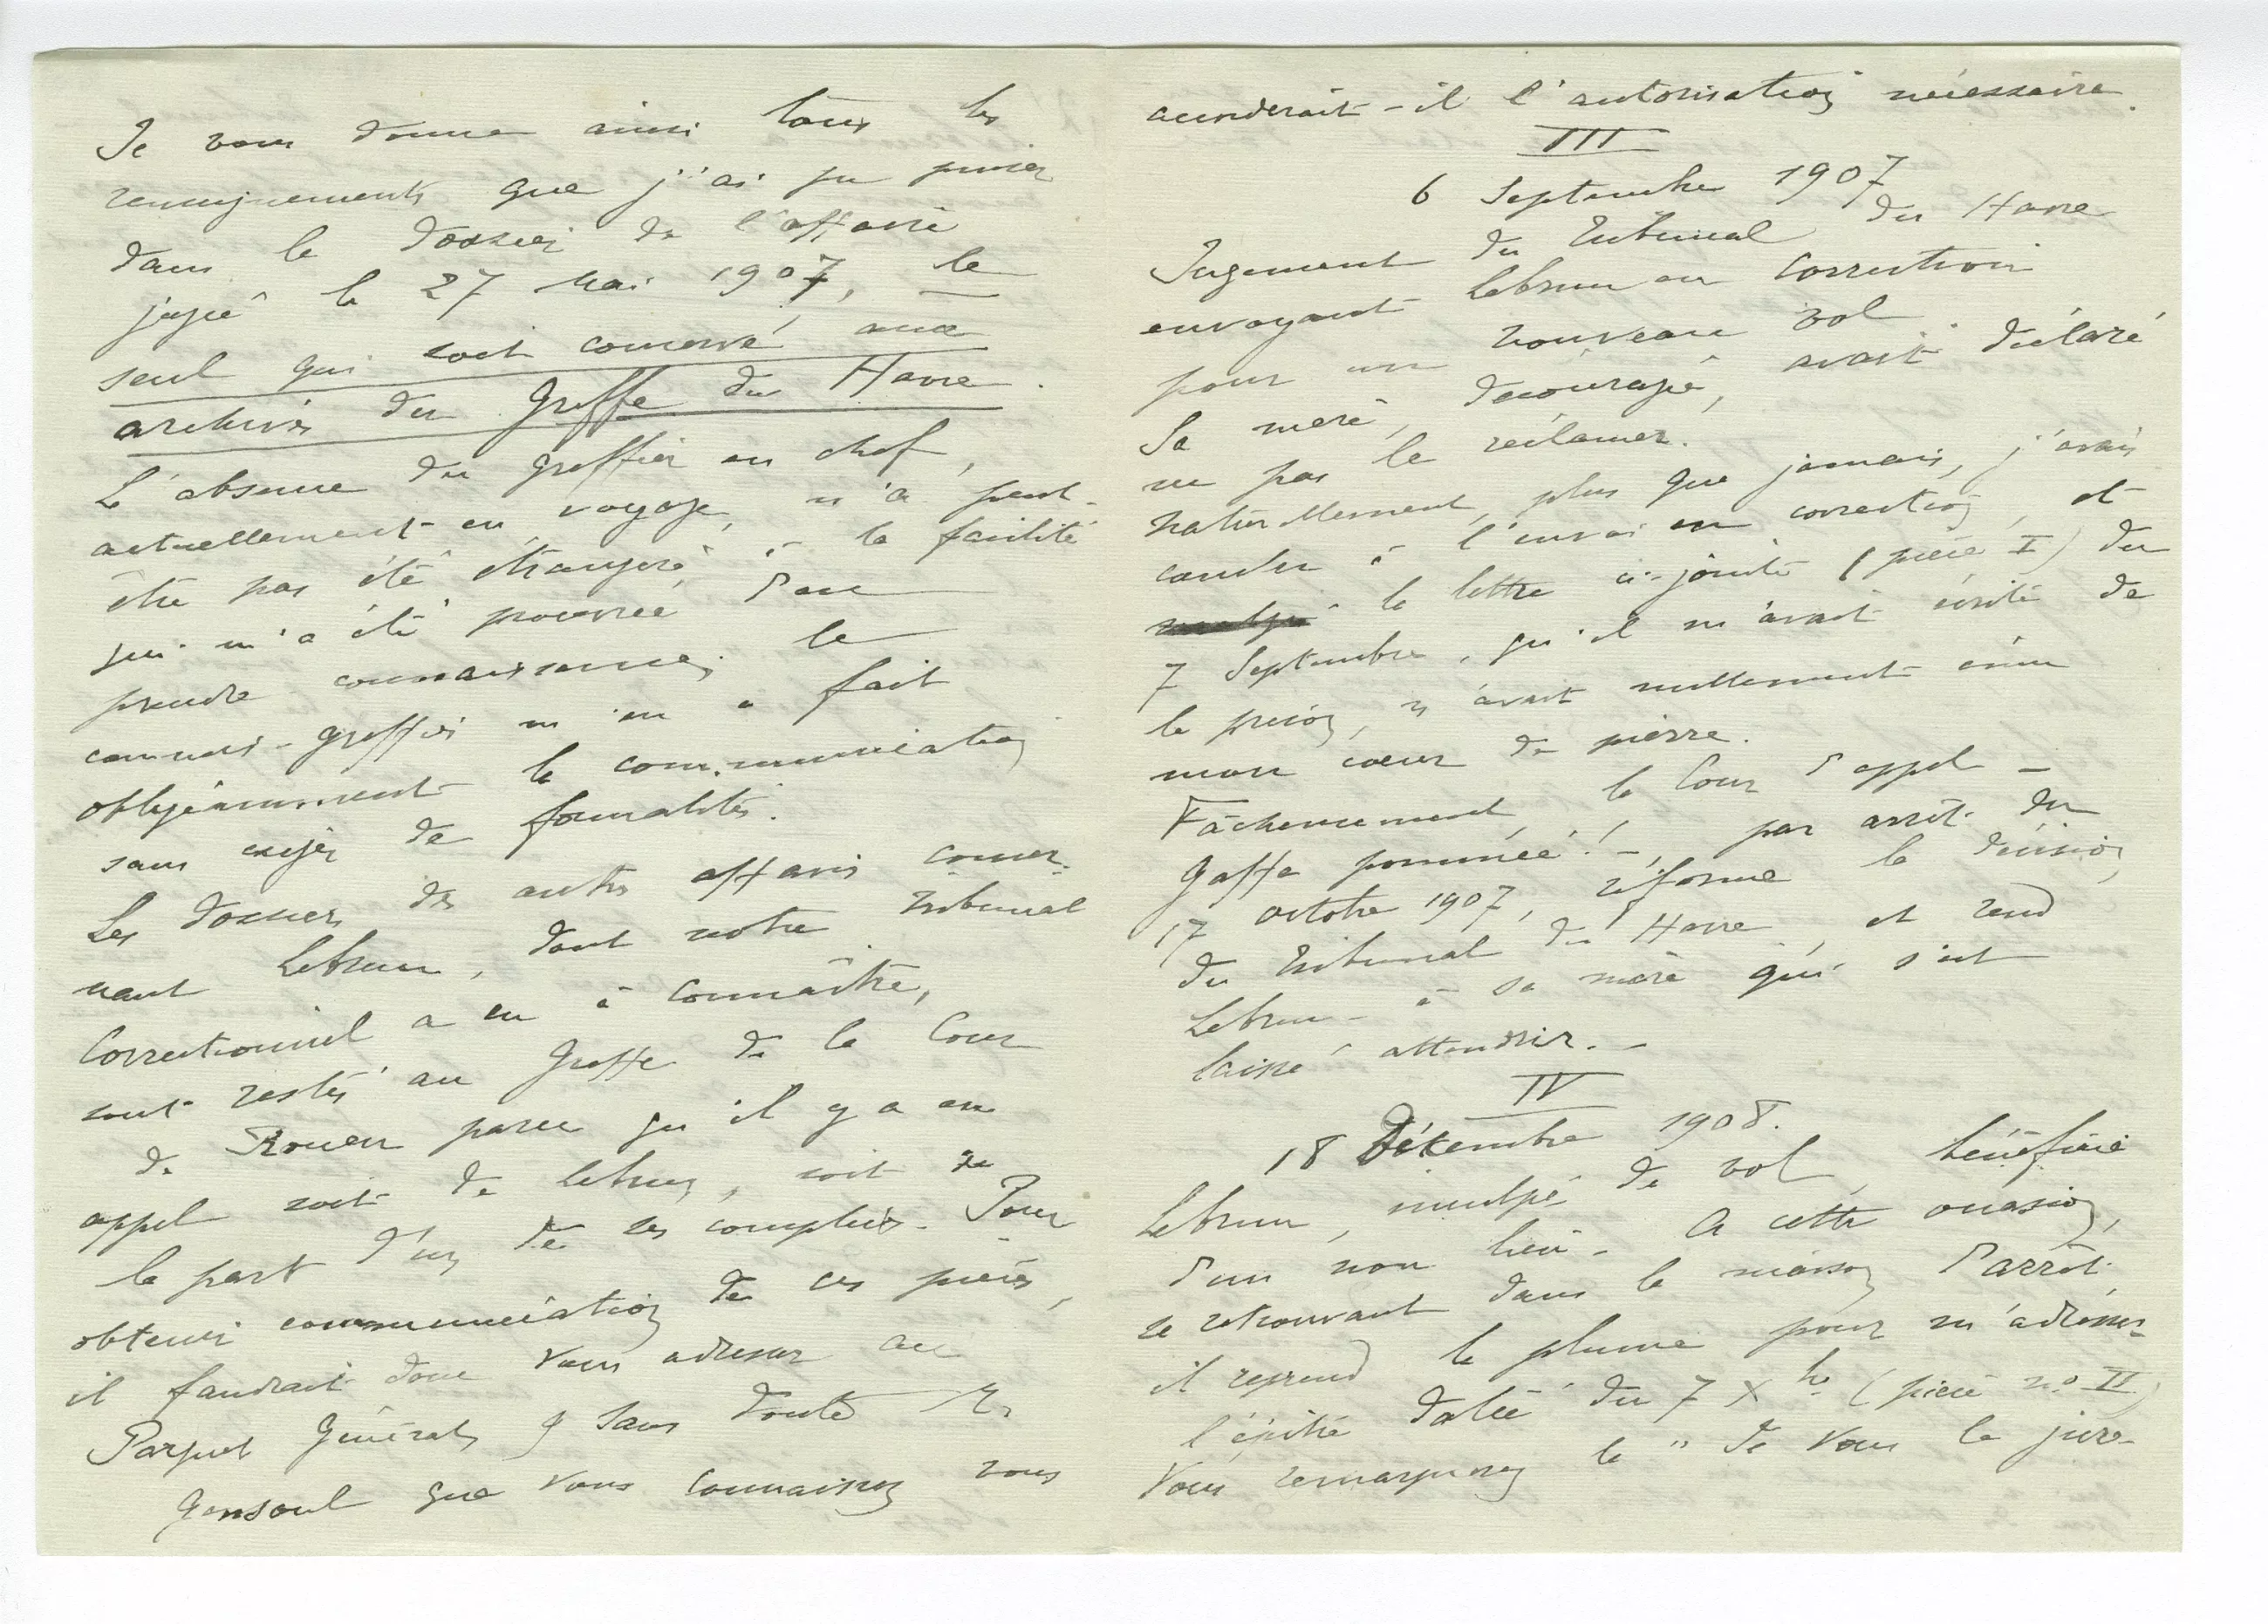 Je vous donne ainsi tous les
renseignements que j'ai pu puiser
dans le dossier de l'affaire
jugée le 27 Mai 1907, le
seul qui soit conservé aux
archives du Greffe du Havre.
L'absence du Greffier en chef,
actuellement en voyage, n'a peut-
être pas été étrangère à la facilité
qui m'a été procurée d'en
prendre connaissance; le
commis-greffier m'en a fait
obligeamment la communication
sans exiger de formalités.
Les dossiers des autres affaires concer-
nant Lebrun, dont notre tribunal
Correctionnel a eu à connaître,
sont restés au Greffe de la Cour
de Rouen parce qu'il y a eu
appel soit de Lebrun, soit de
la part d'un de ses complices. Pour
obtenir communication de ces pièces,
il faudrait donc vous adresser au
Parquet Général, & sans doute Mr
Gensoul que vous connaissez vous
accorderait-il l'autorisation nécessaire.
III
6 Septembre 1907
Jugement du Tribunal du Havre
envoyant Lebrun en correction
pour un nouveau vol
Sa mère, découragée, avait déclaré
ne pas le réclamer.
Naturellement, plus que jamais, j'avais
conclu à l'envoi en correction, et
la lettre ci-jointe (pièce I) du
7 Septembre, qu'il m'avait écrite de
la prison, n'avait nullement ému
mon cœur de pierre.
Fâcheusement la Cour d'appel –
Gaffe pommée! –, par arrêt du
17 octobre 1907, réforme la décision
du Tribunal du Havre, et rend
Lebrun à sa mère qui s'est
laissé attendrir. –
IV
18 Décembre 1908.
Lebrun, inculpé de vol, bénéficie
d'un non lieu – A cette occasion,
se retrouvant dans la maison d'arrêt
il reprend la plume pour m'adresser
l'épitre datée du 7 Xbre (pièce no II)
Vous remarquerez le " Je vous le jure